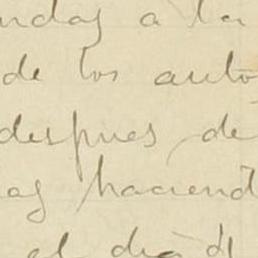 ndas a la
de los auto
despues de
as haciend
el dia d